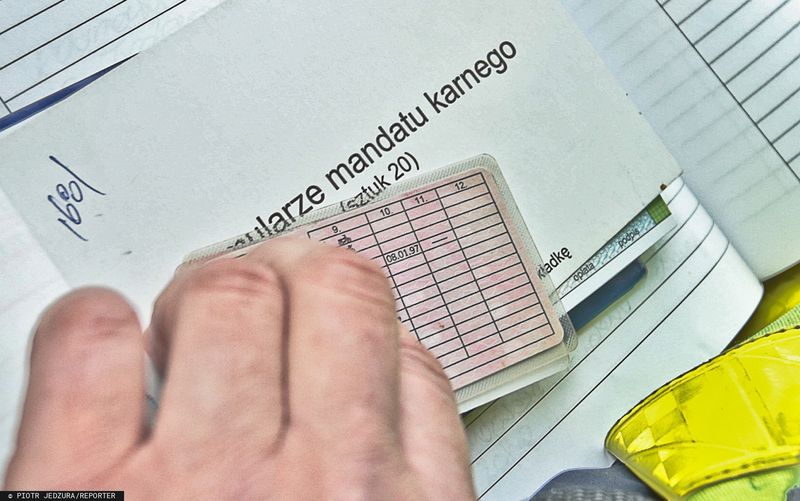 mandatu karnego
(sztuk 20)
1681
9. 10. 11. 12.
08.01.97 —
opłata
podpis
© PIOTR JEDZURA/REPORTER